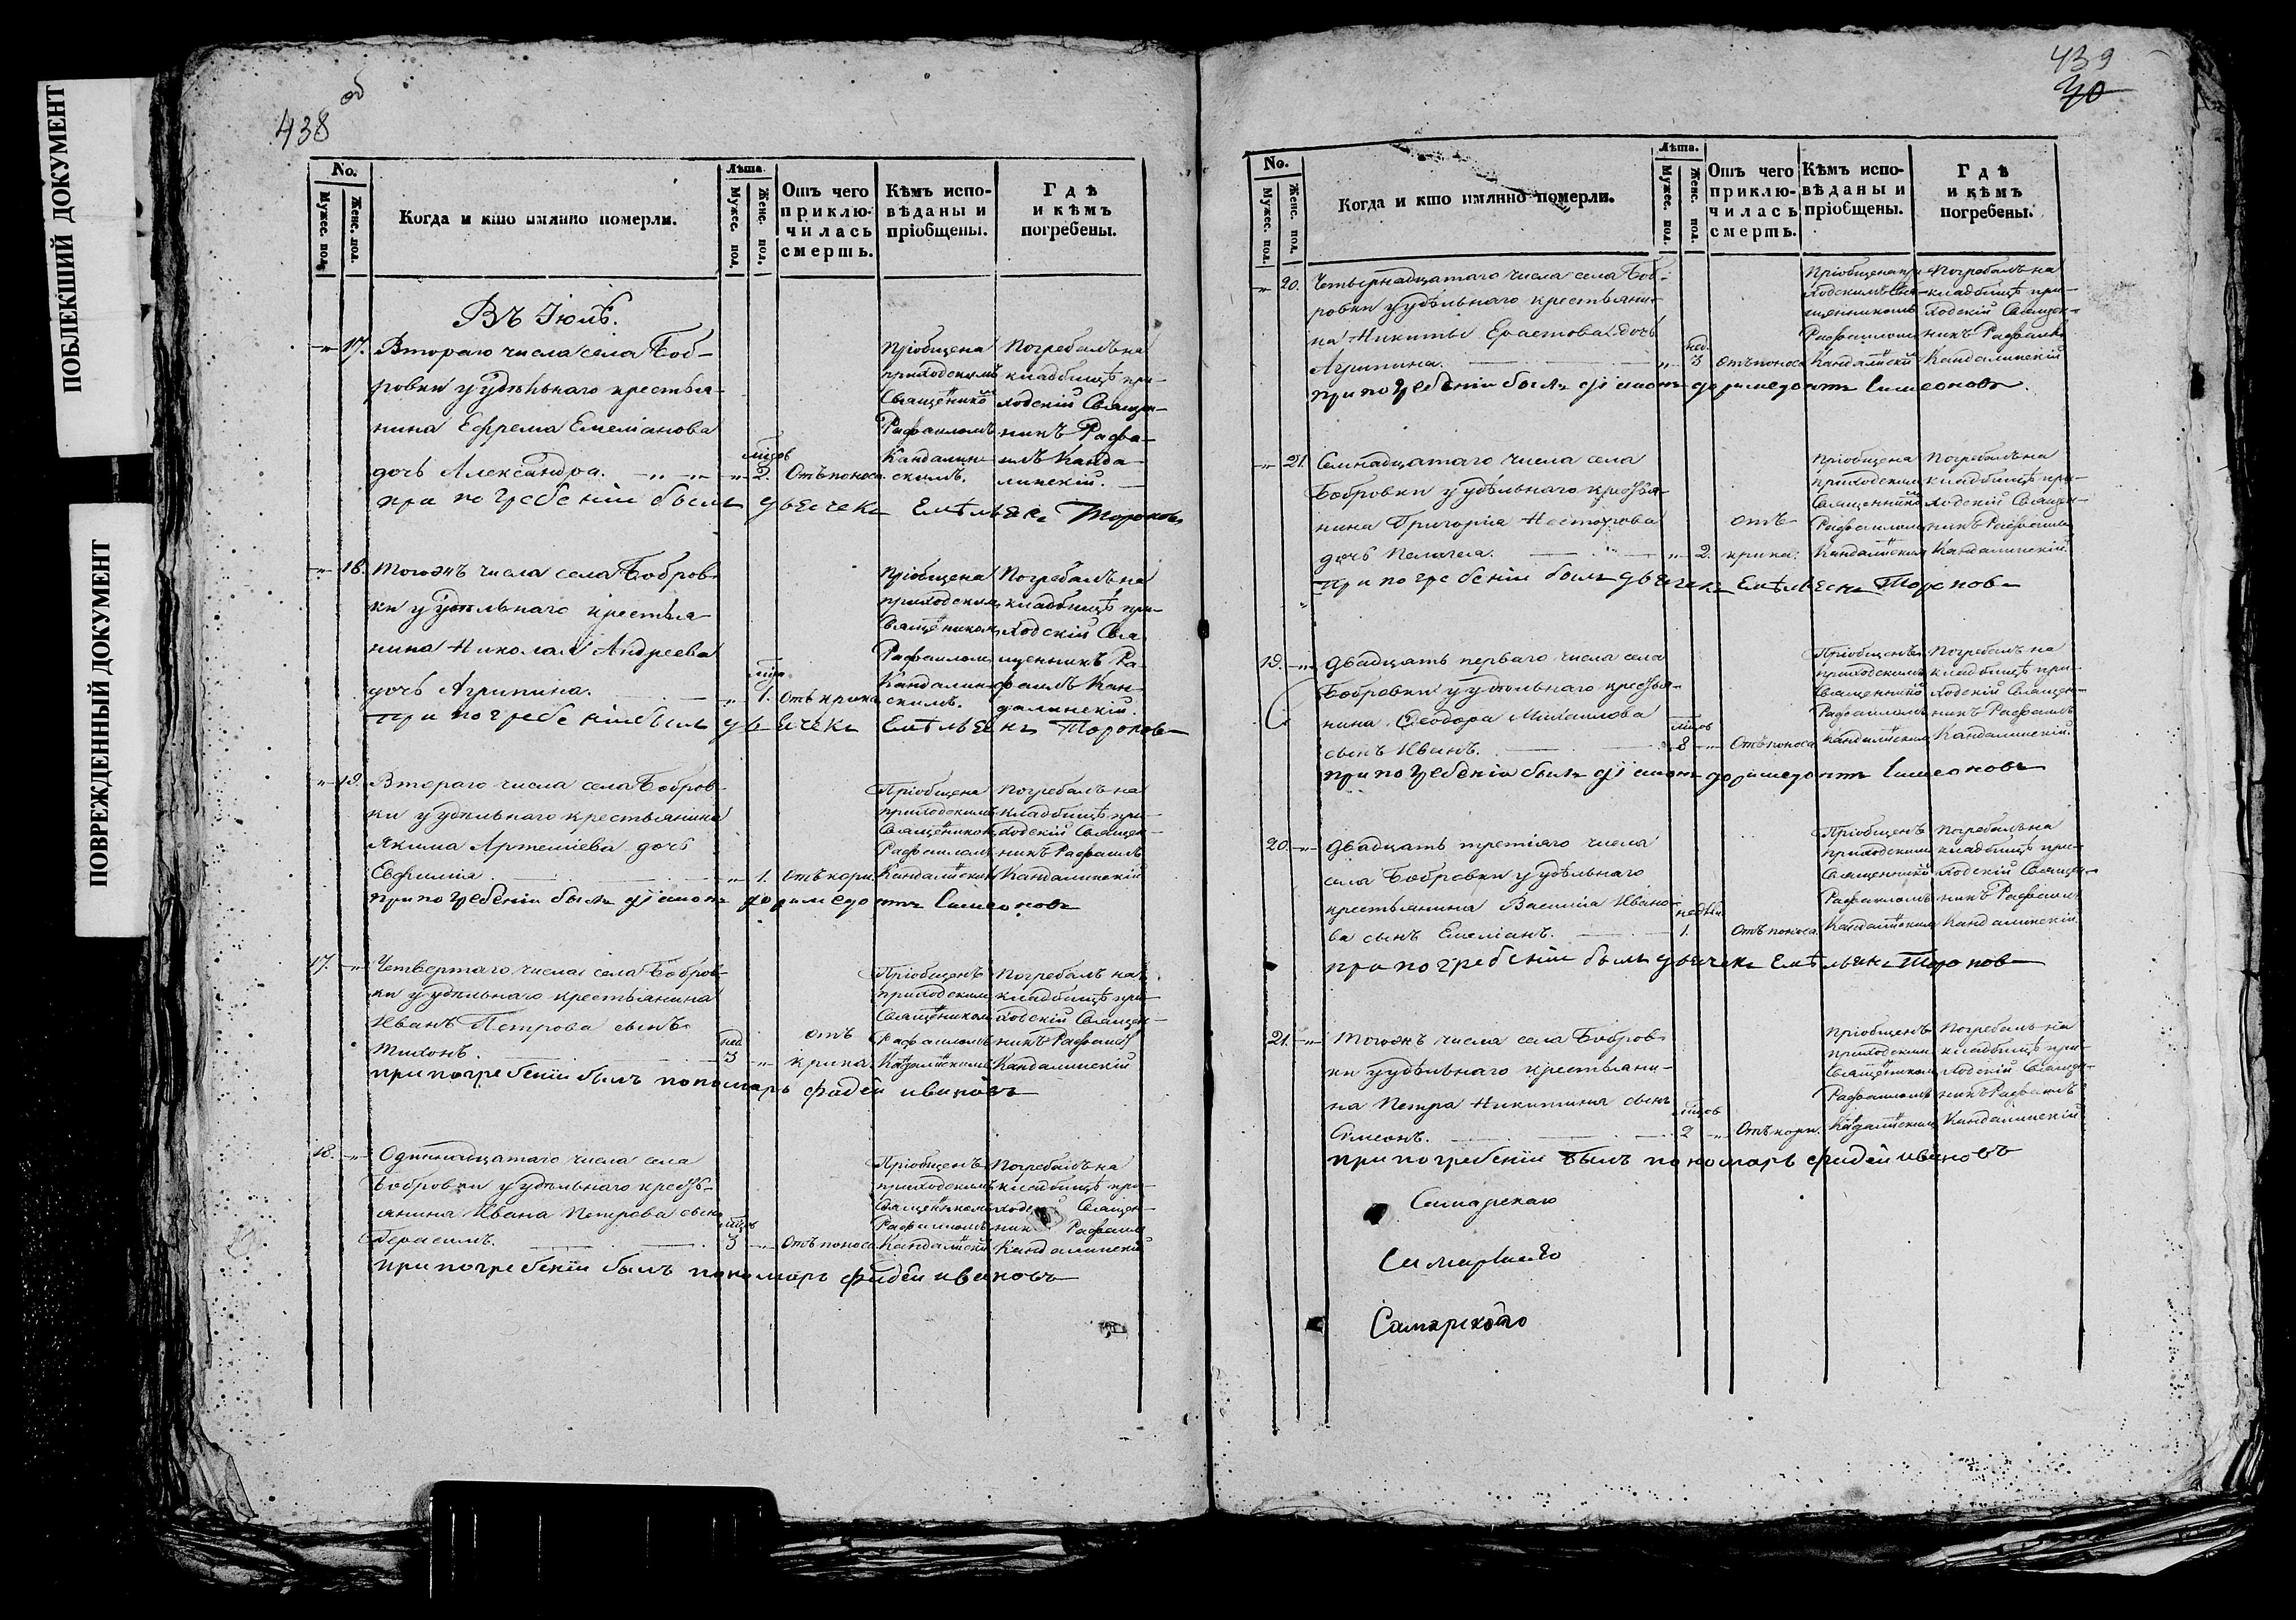 ПОБЛЕКШИЙ ДОКУМЕНТ
ПОВРЕЖДЕННЫЙ ДОКУМЕНТ
438 об
No.
Мужес. пол.
Женс. пол.
Когда и кто имянно померли.
Лѣта.
Мужес. пол.
Женс. пол.
Отъ чего
приклю-
чилась
смерть.
Кѣмъ испо-
вѣданы и
пріобщены.
Гдѣ
и кѣмъ
погребены.
Въ Іюлѣ.
17. Втораго числа села Боб-
ровки у удѣльнаго крестья-
нина Ефрема Емеліанова
дочь Александра.
мѣцов
2. Отъ поноса.
Пріобщена
приходскимъ
Священнико
Рафаиломъ
Кандалин-
скимъ.
Погребалъ на
кладбищѣ при-
ходскій Священ-
никъ Рафа-
илъ Канда-
линскій.
при погребеніи былъ дьячекъ Емѣльянъ Тороповъ
18. Тогожъ числа села Бобров-
ки у удѣльнаго крестья-
нина Николая Андреева
дочь Агрипина.
1. Отъ крика
Пріобщена
приходским
Священником
Рафаилом
Кандалин-
скимъ.
Погребалъ на
кладбищѣ при-
ходскій Свя-
щенникъ Ра-
фаилъ Кан-
далинскій.
при погребеніи былъ дьячекъ Емѣльянъ Тороповъ
19. Втораго числа села Бобров-
ки у удѣльнаго крестьянина
Якима Артеміева дочь
Евфимія
1. Отъ кори.
Пріобщена
приходскимъ
Священником
Рафаиломъ
Кандалинским
Погребалъ на
кладбищѣ при-
ходскій Священ-
никъ Рафаилъ
Кандалинскій
при погребеніи былъ діаконъ Доримедонтъ Симеоновъ
17. Четвертаго числа села Бобров-
ки у удѣльнаго крестьянина
Иванъ Петрова сынъ
Тихонъ.
нед
3
отъ
крика
Пріобщенъ
приходским
Священником
Рафаиломъ
Кандалинскимъ
Погребалъ на
кладбищѣ при-
ходскій Священ-
никъ Рафаилъ
Кандалинскій
при погребеніи былъ пономарь Фадѣй Ивановъ
18. Одинадцатаго числа села
Бобровки у удѣльнаго кресть-
янина Ивана Петрова сынъ
Герасимъ.
мѣцов
3 Отъ поноса
Пріобщенъ
приходскимъ
Священником
Рафаиломъ
Кандалинскі
Погребалъ на
кладбищѣ при-
Священ-
Рафаилъ
Кандалинскій
при погребеніи былъ пономарь Фадѣй Ивановъ
439
70
No.
Мужес. пол.
Женс. пол.
Когда и кто имянно померли.
Лѣта.
Мужес. пол.
Женс. пол.
Отъ чего
приклю-
чилась
смерть.
Кѣмъ испо-
вѣданы и
пріобщены.
Гдѣ
и кѣмъ
погребены.
20. Четырнадцатаго числа села Боб-
ровки у удѣльнаго крестьяни-
на Никиты Ерастова дочь
Агрипина.
нед.
3 Отъ поноса
Пріобщена при-
ходскимъ Свя-
щенникомъ
Рафаиломъ
Кандалинскі
Погребалъ на
кладбищѣ при-
ходскій Священ-
никъ Рафаилъ
Кандалинскій
при погребеніи былъ діаконъ Доримедонтъ Симеоновъ.
21. Семнадцатаго числа села
Бобровки у удѣльнаго крестья-
нина Григорія Несторова
дочь Пелагея.
2.
отъ
крика.
Пріобщена
приходским
Священнико
Рафаилом
Кандалинским
Погребалъ на
кладбищѣ при-
ходскій Священ-
никъ Рафаилъ
Кандалинскій.
при погребеніи былъ дьячекъ Емѣльянъ Тороповъ
19. Двадцать перваго числа села
Бобровки у удѣльнаго крестья-
нина Ѳеодора Михайлова
сынъ Иванъ.
мѣцов
8 Отъ поноса
Пріобщенъ
приходскимъ
Священнико
Рафаиломъ
Кандалинским
Погребалъ на
кладбищѣ при-
ходскій Священ-
никъ Рафаилъ
Кандалинскій.
при погребеніи былъ діаконъ Доримедонтъ Симеоновъ
20. Двадцать третіяго числа
села Бобровки у удѣльнаго
крестьянина Василія Ивано-
ва сынъ Емеліанъ.
недѣли
1. Отъ поноса.
Пріобщенъ
приходским
Священнико
Рафаиломъ
Кандалинским
Погребалъ на
кладбищѣ при-
ходскій Священ-
никъ Рафаилъ
Кандалинскій
при погребеніи былъ дьячекъ Емѣльянъ Тороповъ
21. Тогожъ числа села Бобров-
ки у удѣльнаго крестьяни-
на Петра Никитина сынъ
Симеонъ.
мѣцов
2 Отъ кори.
Пріобщенъ
приходским
Священником
Рафаиломъ
Кандалинским
Погребалъ на
кладбищѣ при-
ходскій Священ-
никъ Рафаилъ
Кандалинскій
при погребеніи былъ пономарь Фадѣй Ивановъ
Самарскаго
Самарскаго
Самарскаго